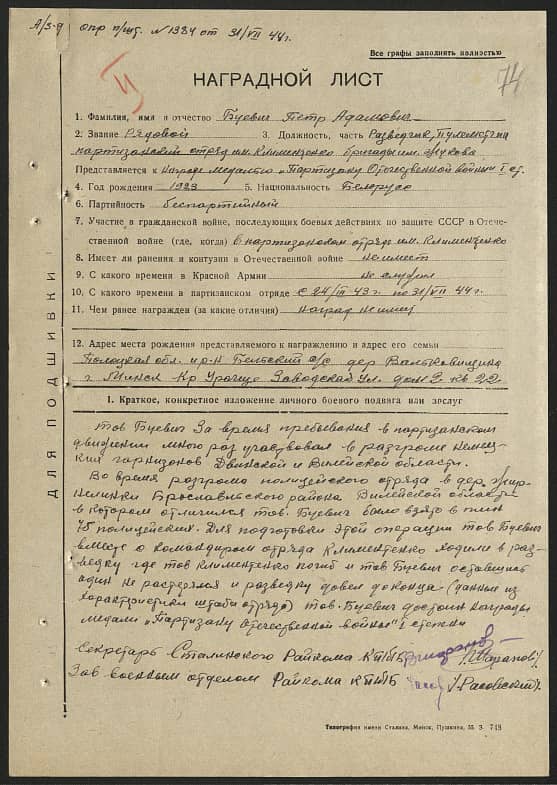 А/3-9 опр п/шт. N 1984 от 31/VII 44г.
Все графы заполнять полностью
НАГРАДНОЙ ЛИСТ
74
1. Фамилия, имя и отчество Буевич Петр Адамович
2. Звание Рядовой 3. Должность, часть Разведчик, Пулеметчик
партизанский отряд им. Клименченко бригады им. Жукова
Представляется к Награде медалью „Партизану Отечественной войны I ст.
4. Год рождения 1923 5. Национальность Белорус
6. Партийность беспартийный
7. Участие в гражданской войне, последующих боевых действиях по защите СССР в Отече-
ственной войне (где, когда) в партизанском отряде им. Клименченко
8. Имеет ли ранения и контузии в Отечественной войне не имеет
9. С какого времени в Красной Армии не служил
10. С какого времени в партизанском отряде с 24/III 43г. по 31/VII 44г.
11. Чем ранее награжден (за какие отличия) Наград не имеет
12. Адрес места рождения представляемого к награждению и адрес его семьи
Полоцкая обл. и р-н с/с дер
г. Минск Кр Урочище Заводская Ул. дом 2 кв 22
1. Краткое, конкретное изложение личного боевого подвига или заслуг
ДЛЯ ПОДШИВКИ
тов Буевич За время пребывания в партизанском
движении много раз участвовал в разгроме немец-
ких гарнизонов Двинской и Вилейской области.
Во время разгрома полицейского отряда в дер.
Брославского района Вилейской области
в котором отличился тов. Буевич было взято в плин
75 полицейских. Для подготовки этой операции тов Буевич
вместе с командиром отряда Климентенко ходили в раз-
ведку где тов Климентенко погиб и тов Буевич оставшись
один не растерялся и разведку довел до конца (данные из
характеристики штаба отряда) тов. Буевич достоин награды
медали „Партизану отечественной войны" I степени
Секретарь Сталинского Райкома КП/б/Б /Шарапов/
Зав военным отделом Райкома КП/б/Б /Расовский/
Типография имени Сталина, Минск, Пушкина, 55 З. 748